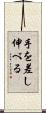 手を差し
伸べる